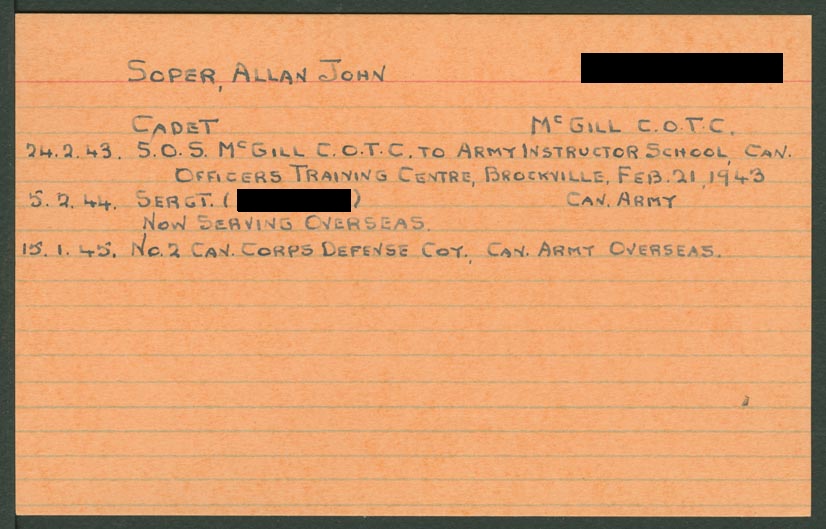 SOPER, ALLAN JOHN
CADET McGILL C.O.T.C.
24.2.43. S.O.S. McGILL C.O.T.C. TO ARMY INSTRUCTOR SCHOOL, CAN.
OFFICERS TRAINING CENTRE, BROCKVILLE, FEB. 21, 1943
5.2.44. SERGT. ( ) CAN. ARMY
NOW SERVING OVERSEAS.
15.1.45. NO.2 CAN. CORPS DEFENSE COY., CAN. ARMY OVERSEAS.